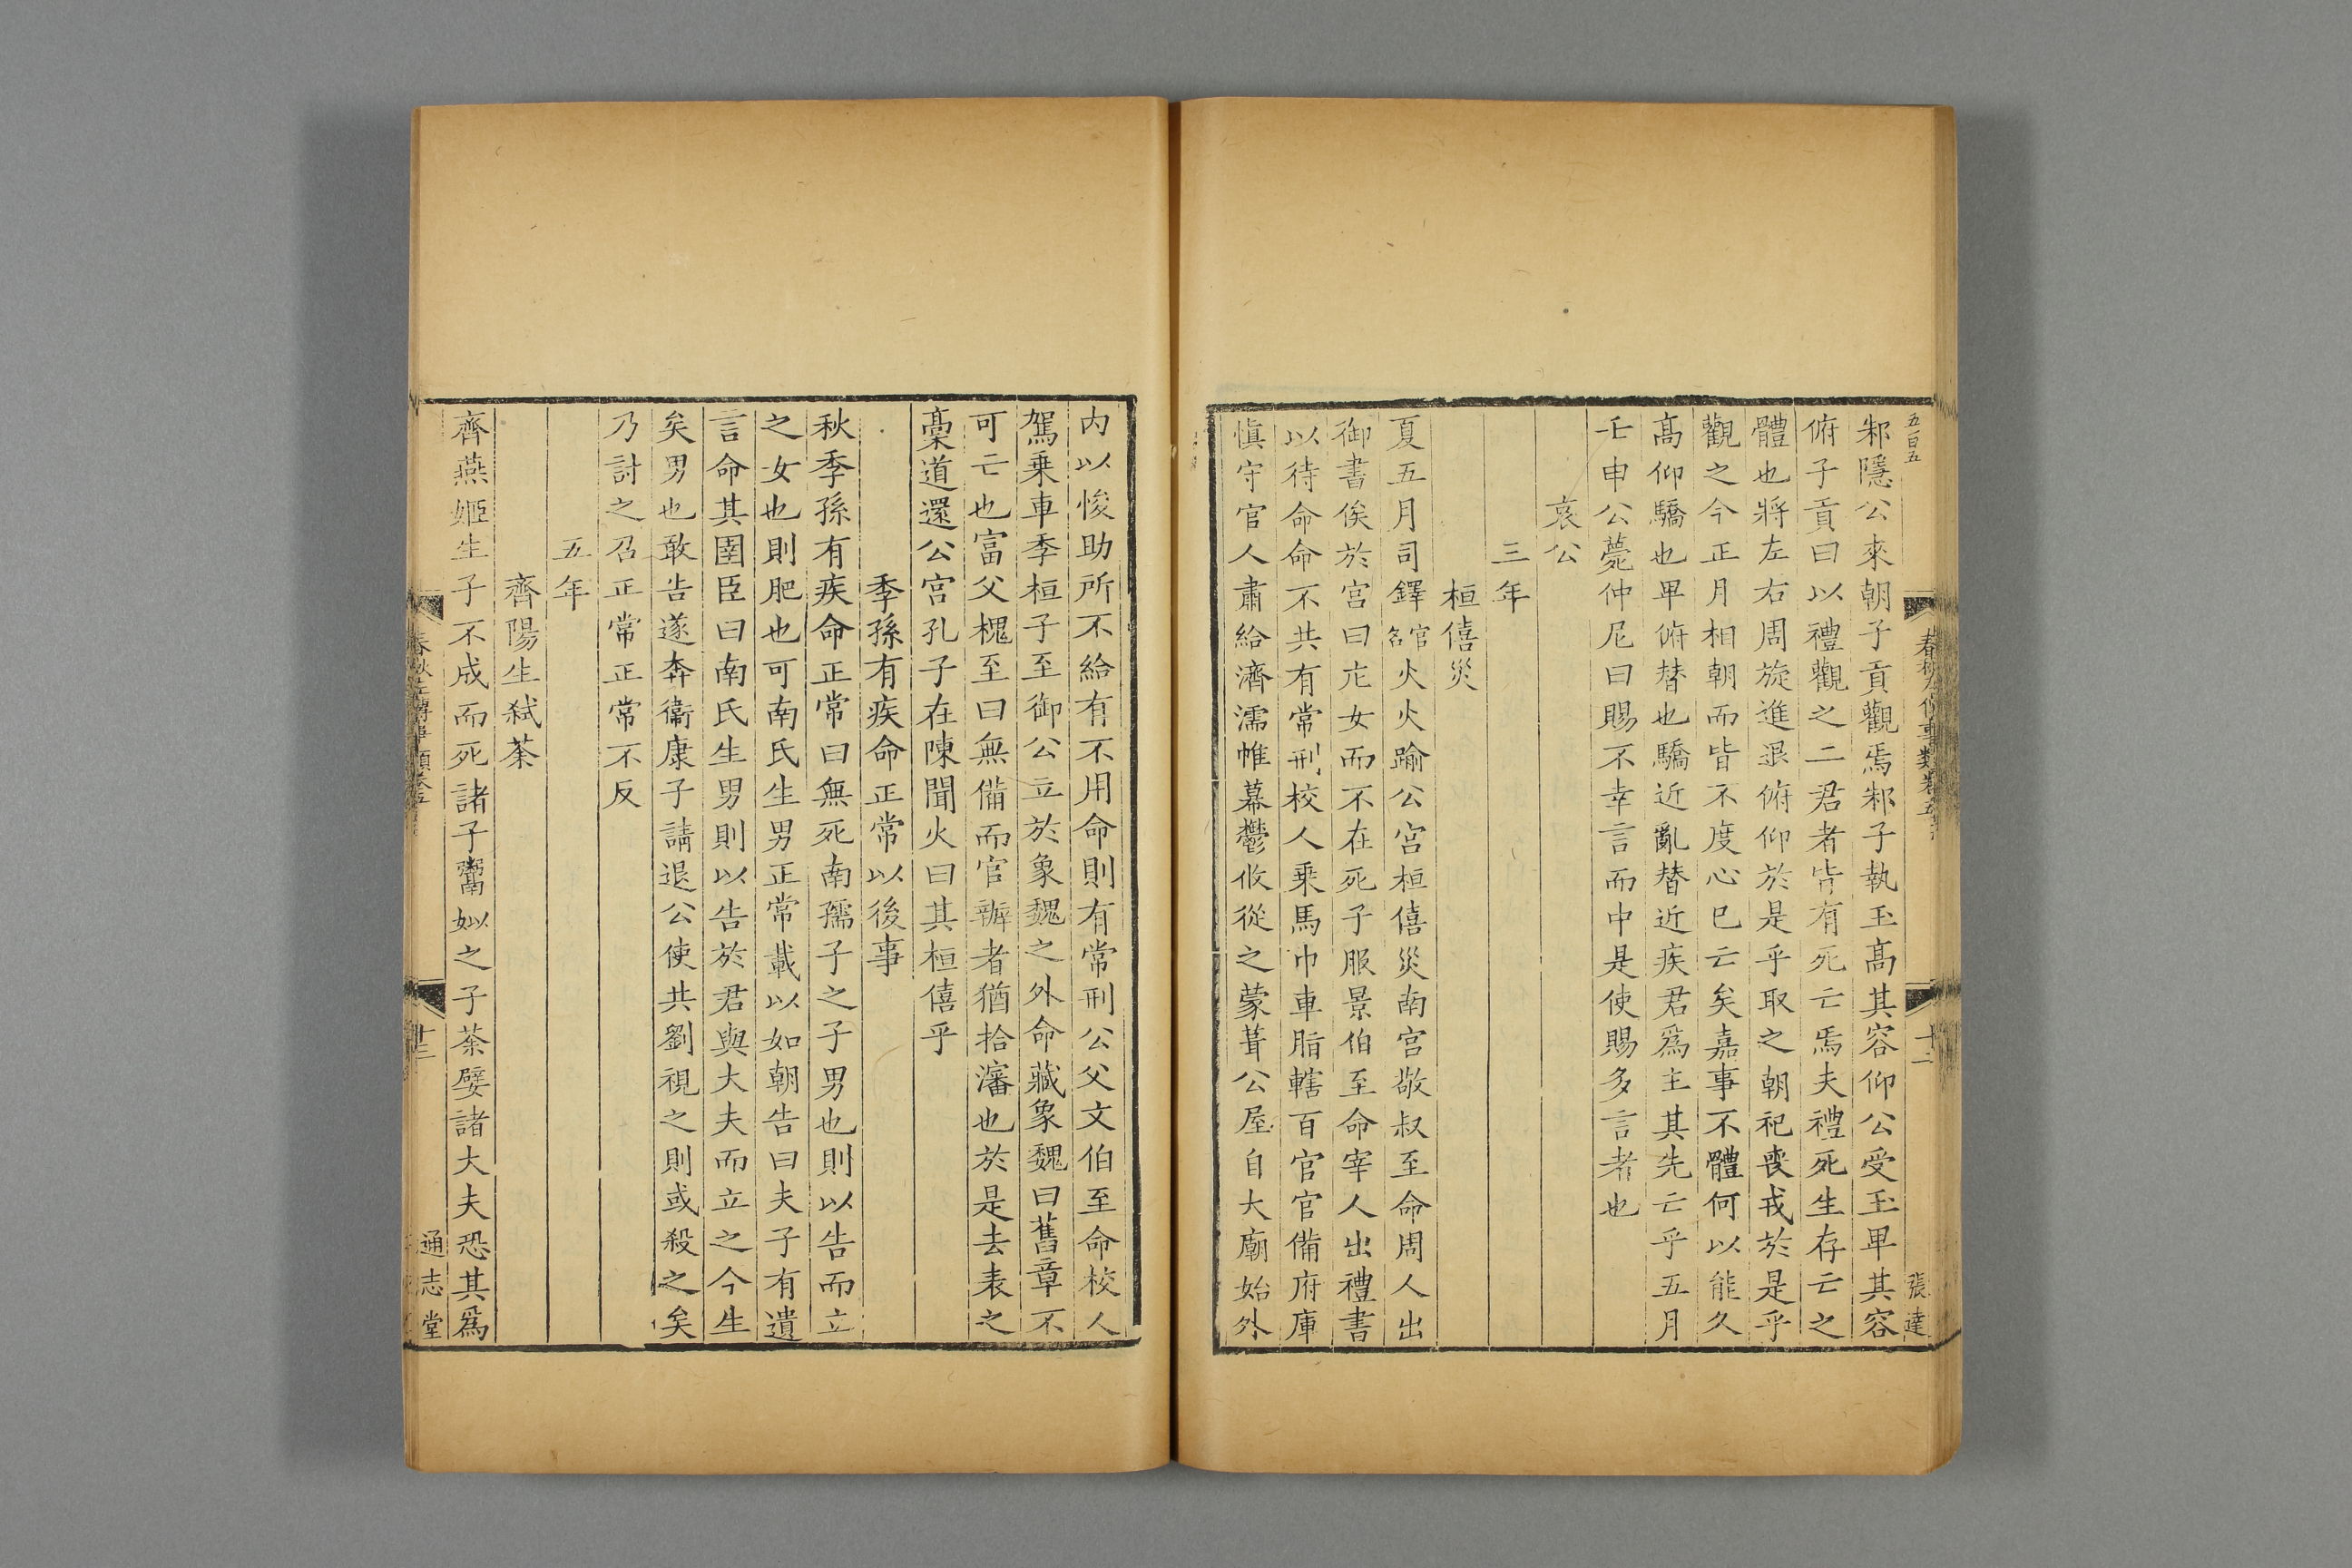 五百五
春秋左傳事類卷五
十二
張達
邾隱公來朝子貢觀焉邾子執玉高其容仰公受玉卑其容
俯子貢曰以禮觀之二君者皆有死亡焉夫禮死生存亡之
體也將左右周旋進退俯仰於是乎取之朝祀喪戎於是乎
觀之今正月相朝而皆不度心已亡矣嘉事不體何以能久
高仰驕也卑俯替也驕近亂替近疾君爲主其先亡乎五月
壬申公薨仲尼曰賜不幸言而中是使賜多言者也
哀公
三年
桓僖災
夏五月司鐸官名火火踰公宮桓僖災南宮敬叔至命周人出
御書俟於宮曰庀女而不在死子服景伯至命宰人出禮書
以待命命不共有常刑校人乘馬巾車脂轄百官官備府庫
愼守官人肅給濟濡帷幕鬱攸從之蒙葺公屋自大廟始外
內以悛助所不給有不用命則有常刑公父文伯至命校人
駕乗車季桓子至御公立於象魏之外命藏象魏曰舊章不
可亡也富父槐至曰無備而官辦者猶拾瀋也於是去表之
藁道還公宮孔子在陳聞火曰其桓僖乎
季孫有疾命正常以後事
秋季孫有疾命正常曰無死南孺子之子男也則以告而立
之女也則肥也可南氏生男正常載以如朝告曰夫子有遺
言命其圉臣曰南氏生男則以告於君與大夫而立之今生
矣男也敢告遂奔衞康子請退公使共劉視之則或殺之矣
乃討之召正常正常不反
五年
齊陽生弒荼
齊燕姬生子不成而死諸子鬻姒之子荼嬖諸大夫恐其爲
春秋左傳事類卷五
十三
通志堂